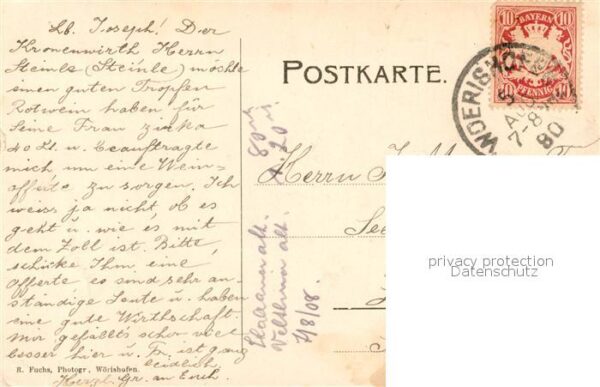 Lb. Joseph! Der
Kronenwirth Herrn
Steinle (Steinle) möchte
einen guten Tropfen
Rotwein haben für
seine Frau zirka
40 Lt. u. beauftragte
mich um eine Wein-
offerte zu sorgen. Ich
weiss ja nicht, ob es
geht u. wie es mit
dem Zoll ist. Bitte,
schicke Ihm eine
Offerte, es sind sehr an-
ständige Leute u. haben
eine gute Wirthschaft.
Mir gefällts schon viel
besser hier u. Fr. ist ganz
leidlich.
Herzl. Gr. an Euch.
R. Fuchs, Photogr., Wörishofen.
POSTKARTE.
Herrn
See
80
20
Veltliner alt.
7/8/08.
BAYERN
10 10
10 PFENNIG 10
WOERISHOFEN
5
7-8
80
privacy protection
Datenschutz